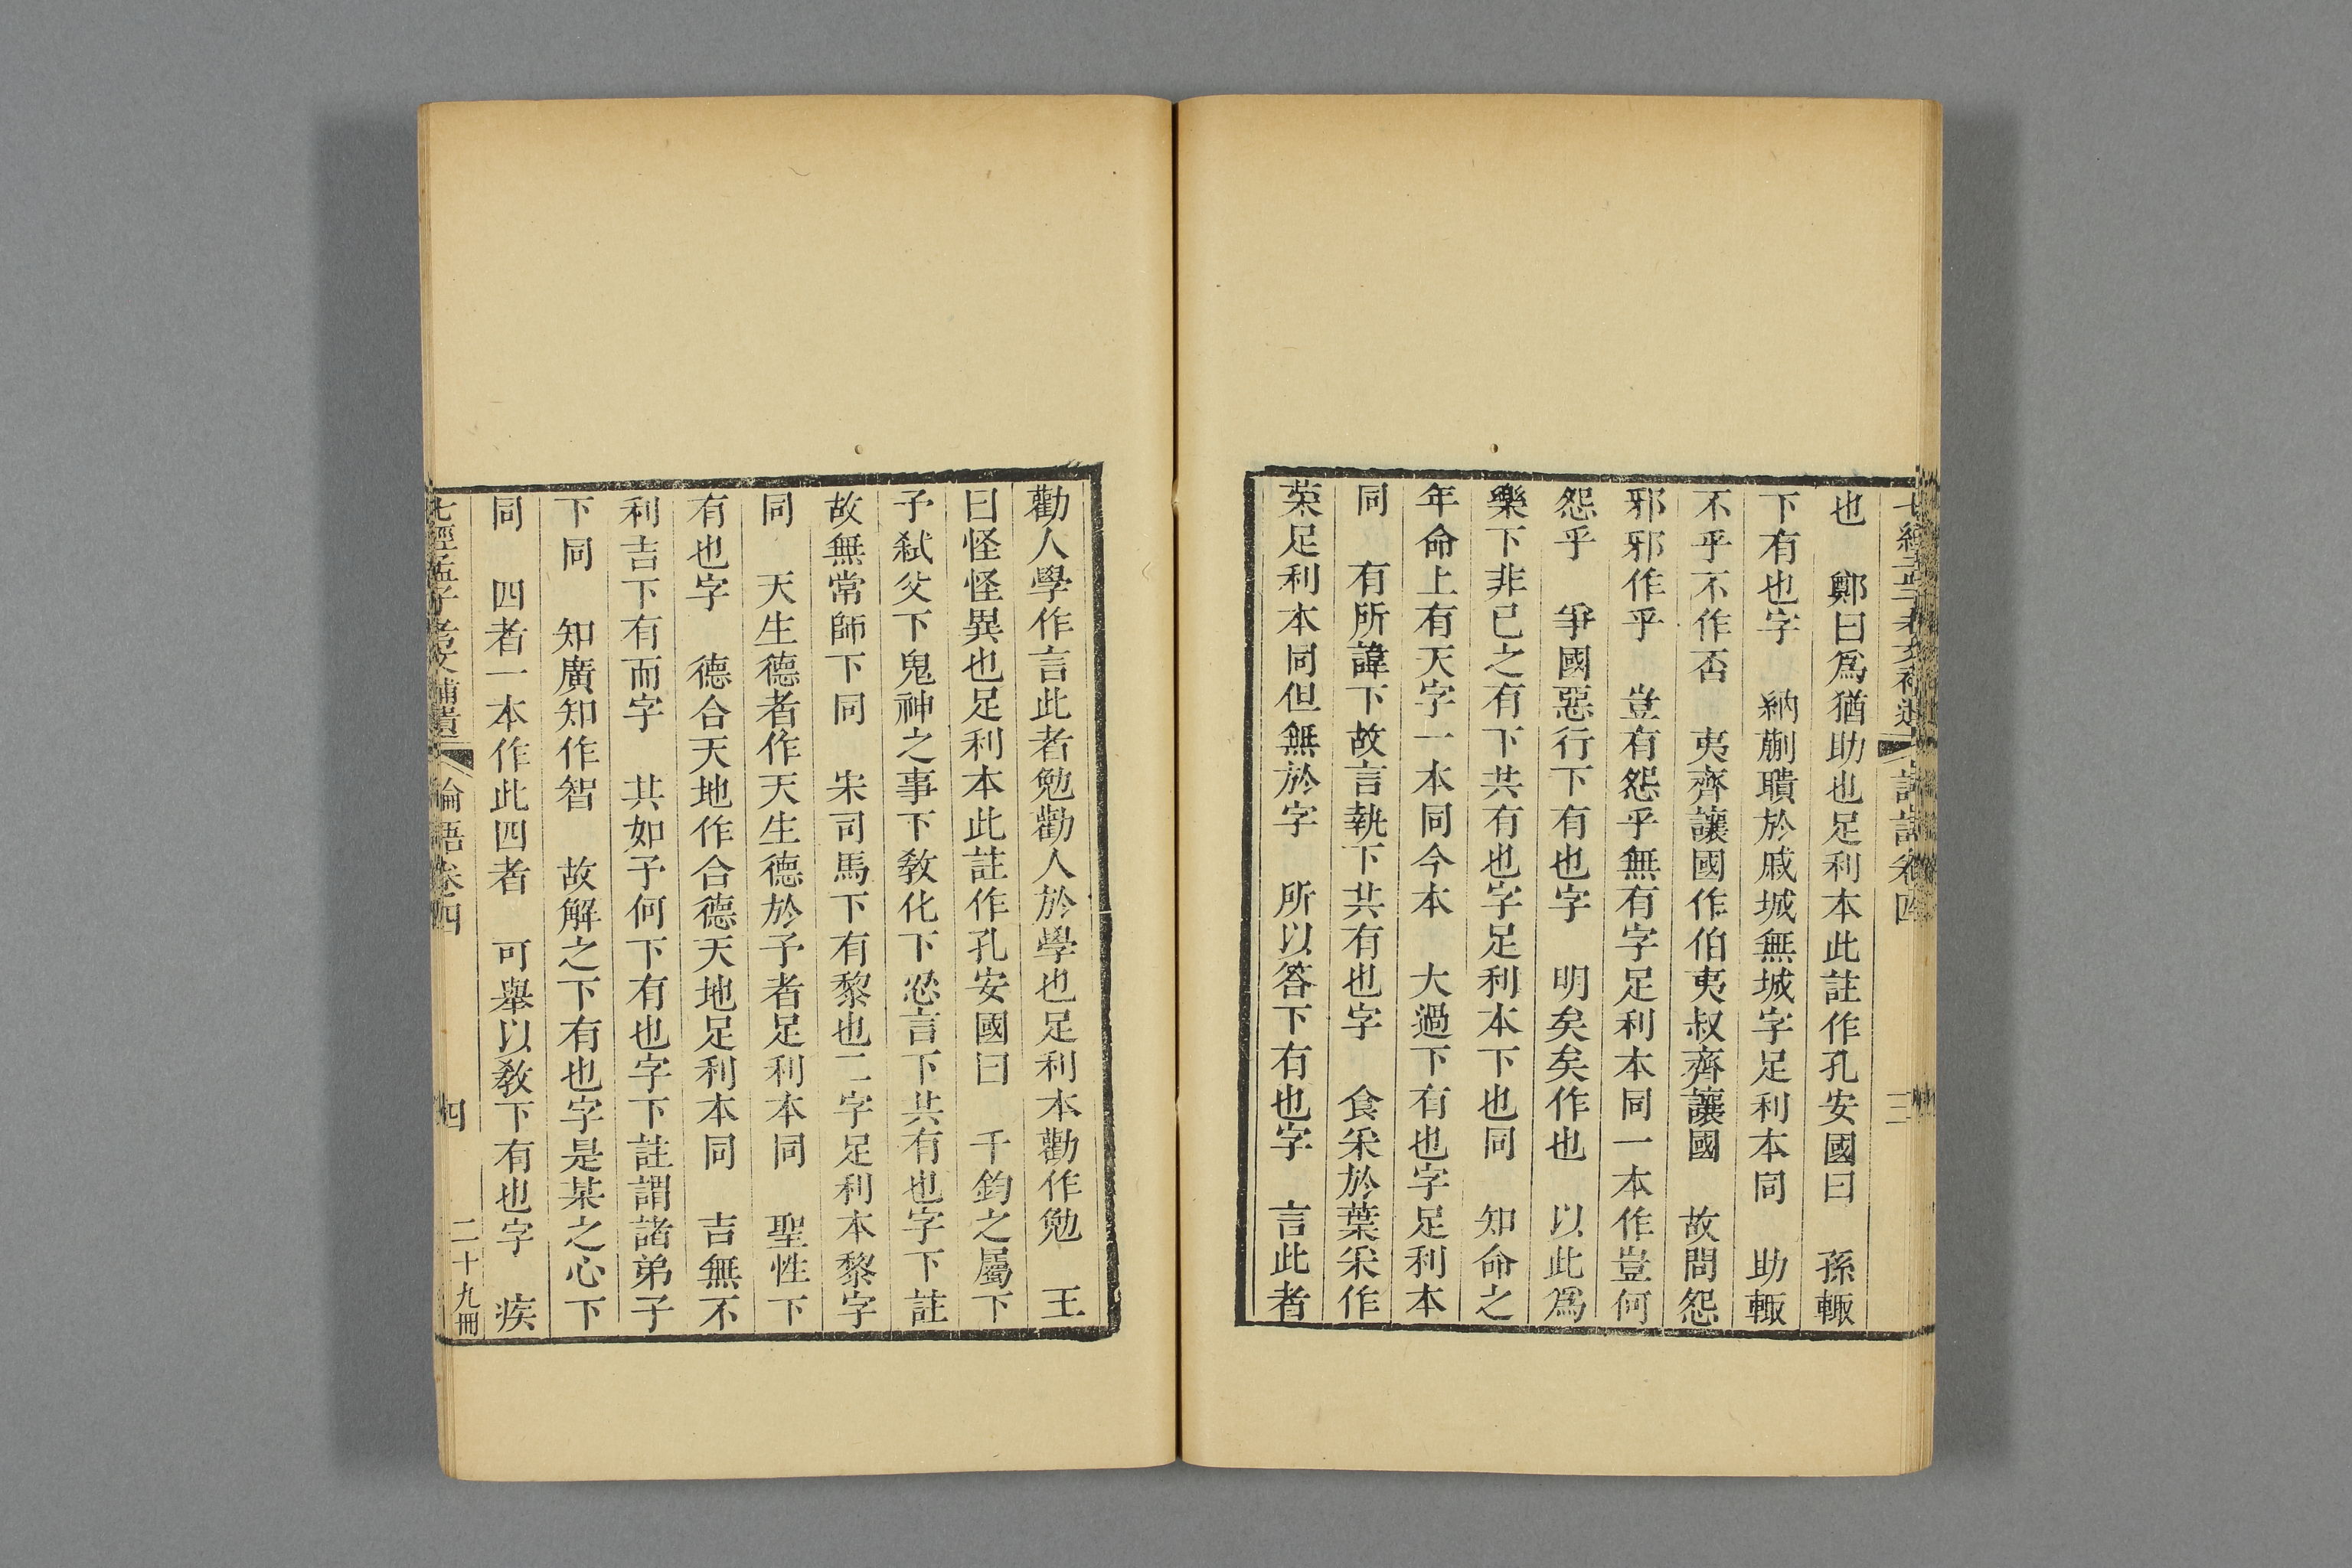 也　鄭曰爲猶助也足利本此註作孔安國曰　孫輙
下有也字　納蒯聵於戚城無城字足利本同　助輙
不乎不作否　夷齊讓國作伯夷叔齊讓國　故問怨
邪邪作乎　豈有怨乎無有字足利本同一本作豈何
怨乎　爭國惡行下有也字　明矣矣作也　以此爲
樂下非已之有下共有也字足利本下也同　知命之
年命上有天字一本同今本　大過下有也字足利本
同　有所諱下故言執下共有也字　食采於葉采作
菜足利本同但無於字　所以答下有也字　言此者
勸人學作言此者勉勸人於學也足利本勸作勉　王
曰怪怪異也足利本此註作孔安國曰　千鈞之屬下
子弑父下鬼神之事下教化下忍言下共有也字下註
故無常師下同　宋司馬下有黎也二字足利本黎字
同　天生德者作天生德於予者足利本同　聖性下
有也字　德合天地作合德天地足利本同　吉無不
利吉下有而字　其如予何下有也字下註謂諸弟子
下同　知廣知作智　故解之下有也字是某之心下
同　四者一本作此四者　可舉以敎下有也字　疾
七經孟子考文補遺　論語卷四　四　二十九冊